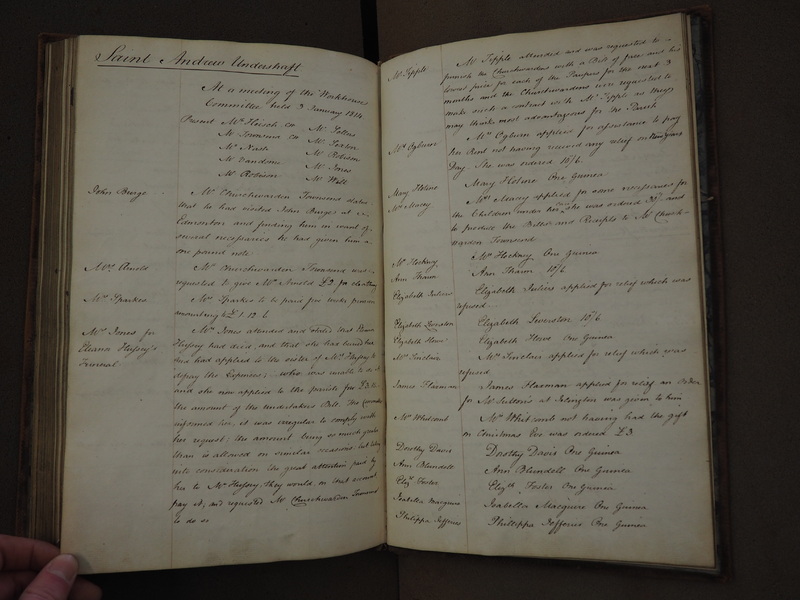 Saint Andrew Undershaft
At a meeting of the Workhouse
Committee held 3 January 1814
Present Mr Heisch
Mr Townsend
Mr Nash
Mr Vandome
Mr Robison
Mr Sellers
Mr Sexton
Mr Jones
John Burge
Mr Churchwarden Townsend stated
that he had visited John Burge at
Edmonton and finding him in want of
several necessaries he had given him a
one pound note
Mrs Arnold
Mr Churchwarden Townsend was
requested to give Mrs Arnold £2 for
Mr Sparkes
Mr Sparkes to be paid for work
amounting to £1.12.6
Mrs Jones for
Eleanor Hussey's
Funeral
Mrs Jones attended and stated that
Hussey had died, and that she had buried her
and had applied to the sister of Mrs Hussey to
defray the Expences, who was unable to do it
and she now applied to the parish for
the amount of the Undertakers Bill. The Committee
informed her, it was irregular to comply with
her request, the amount being so much greater
than is allowed on similar occasions, but taking
into consideration the great attention paid by
her to Mrs Hussey, they would on that account
pay it, and requested Mr Churchwarden Townsend
to do so
Mr Tipple
Mr Tipple attended and was requested to
furnish the Churchwardens with a Bill of fare and his
lowest price for each of the Paupers for the next 3
months and the Churchwardens were requested to
make such a contract with Mr Tipple as they
may think most advantageous for the Parish
Mrs Ogburn
Mrs Ogburn applied for assistance to pay
her Rent not having received any relief on
Day. She was ordered 10/6
Mary Holme
Mary Holme One Guinea
Mrs Macey
Mrs Macey applied for some necessaries for
the Children under her, she was ordered and
to produce the Bills and Receipts to Mr Church-
warden Townsend
Mrs Horkney
Mrs Horkney One Guinea
Ann Thawn
Ann Thawn 10/6
Elizabeth Juliers
Elizabeth Juliers applied for relief which was
refused
Elizabeth Leverston
Elizabeth Leverston 10/6
Elizabeth Howe
Elizabeth Howe One Guinea
Mrs Sinclair
Mrs Sinclair applied for relief which was
refused
James Flaxman
James Flaxman applied for relief an Order
for Mr Sutton's at Islington was given to him
Mrs Whitcomb
Mrs Whitcomb not having had the gift
on Christmas Eve was ordered £3
Dorothy Davis
Dorothy Davis One Guinea
Ann Blundell
Ann Blundell One Guinea
Elizth Foster
Elizth Foster One Guinea
Isabella Macguire
Isabella Macguire One Guinea
Philippa Jefferies
Philippa Jefferies One Guinea